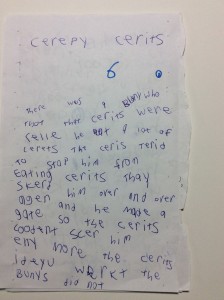 cerepy cerits
there was a buny who
thot that cerits were
felle he eat a lot of
cerets the ceris terid
to stop him fron
eating cerits thay
skerd him over and over
agen and he made a
gate so the cerits
coodent scer him
eny more the cerits
ideyu werkt the
bunys did not